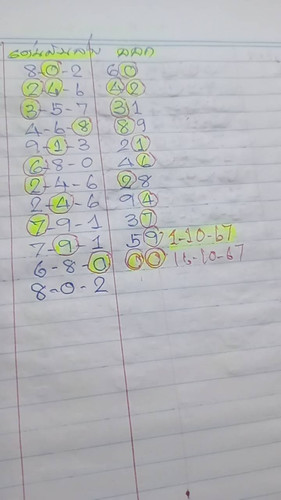 เด่นบนล่าง ผลออก
8-0-2 60
2-4-6 42
3-5-7 31
4-6-8 89
9-1-3 21
6-8-0
2-4-6 28
2-4-6 94
7-9-1 37
7-9-1 59 1-10-67
6-8-0 00 16-10-67
8-0-2